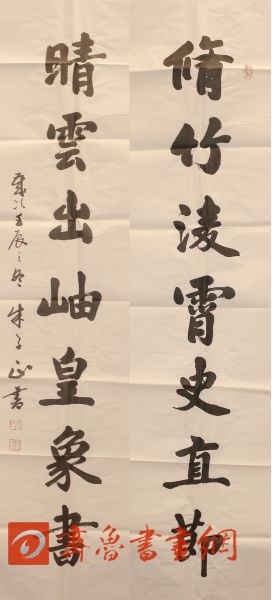 脩竹淩霄史直節
晴雲出岫皇象書
歲次壬辰之冬 朱子正書
齊魯書畫網